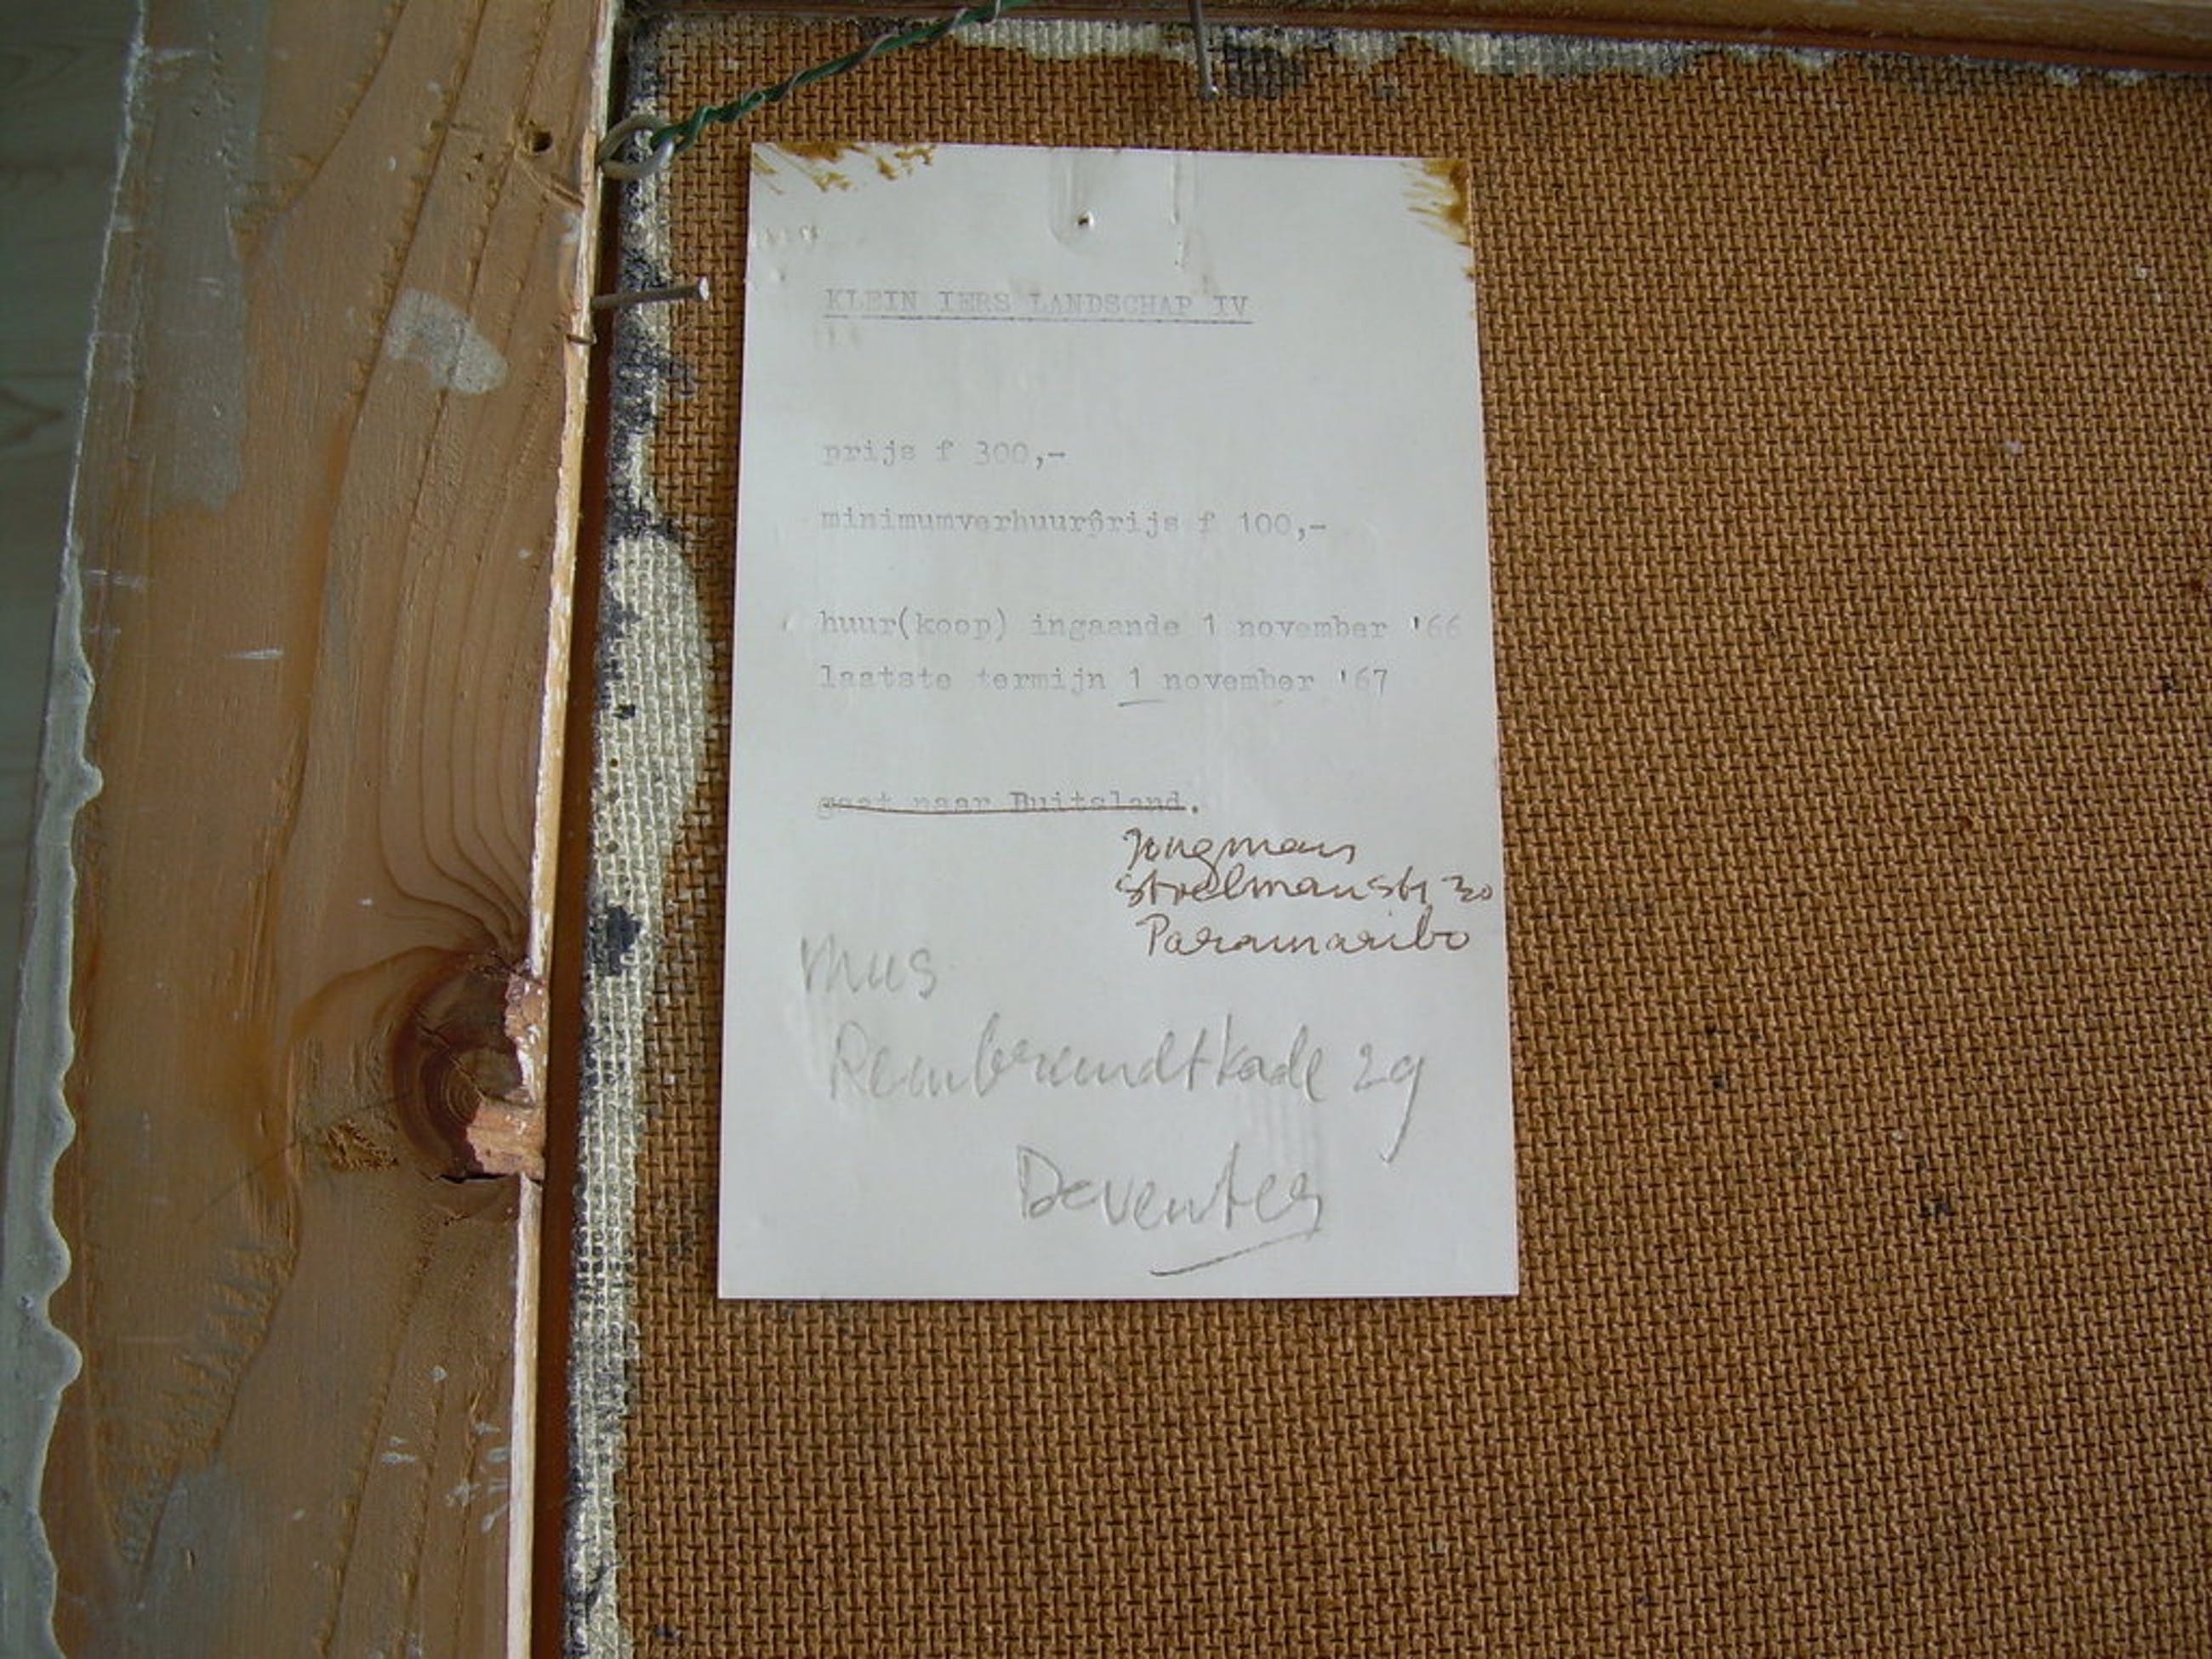 KLEIN IERS LANDSCHAP IV
prijs f 300,-
minimumverhuurprijs f 100,-
huur(koop) ingaande 1 november '66
laatste termijn 1 november '67
gaat naar Buitsland.
Jongmans
30
Paramaribo
Mus
Rembrandtkade 29
Deventer